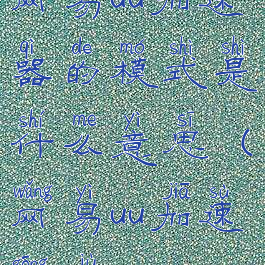 网易uu加速
qì de mó shì shì
器的模式是
shí me yì sī
什么意思（
wǎng yì jiā sù
网易uu加速